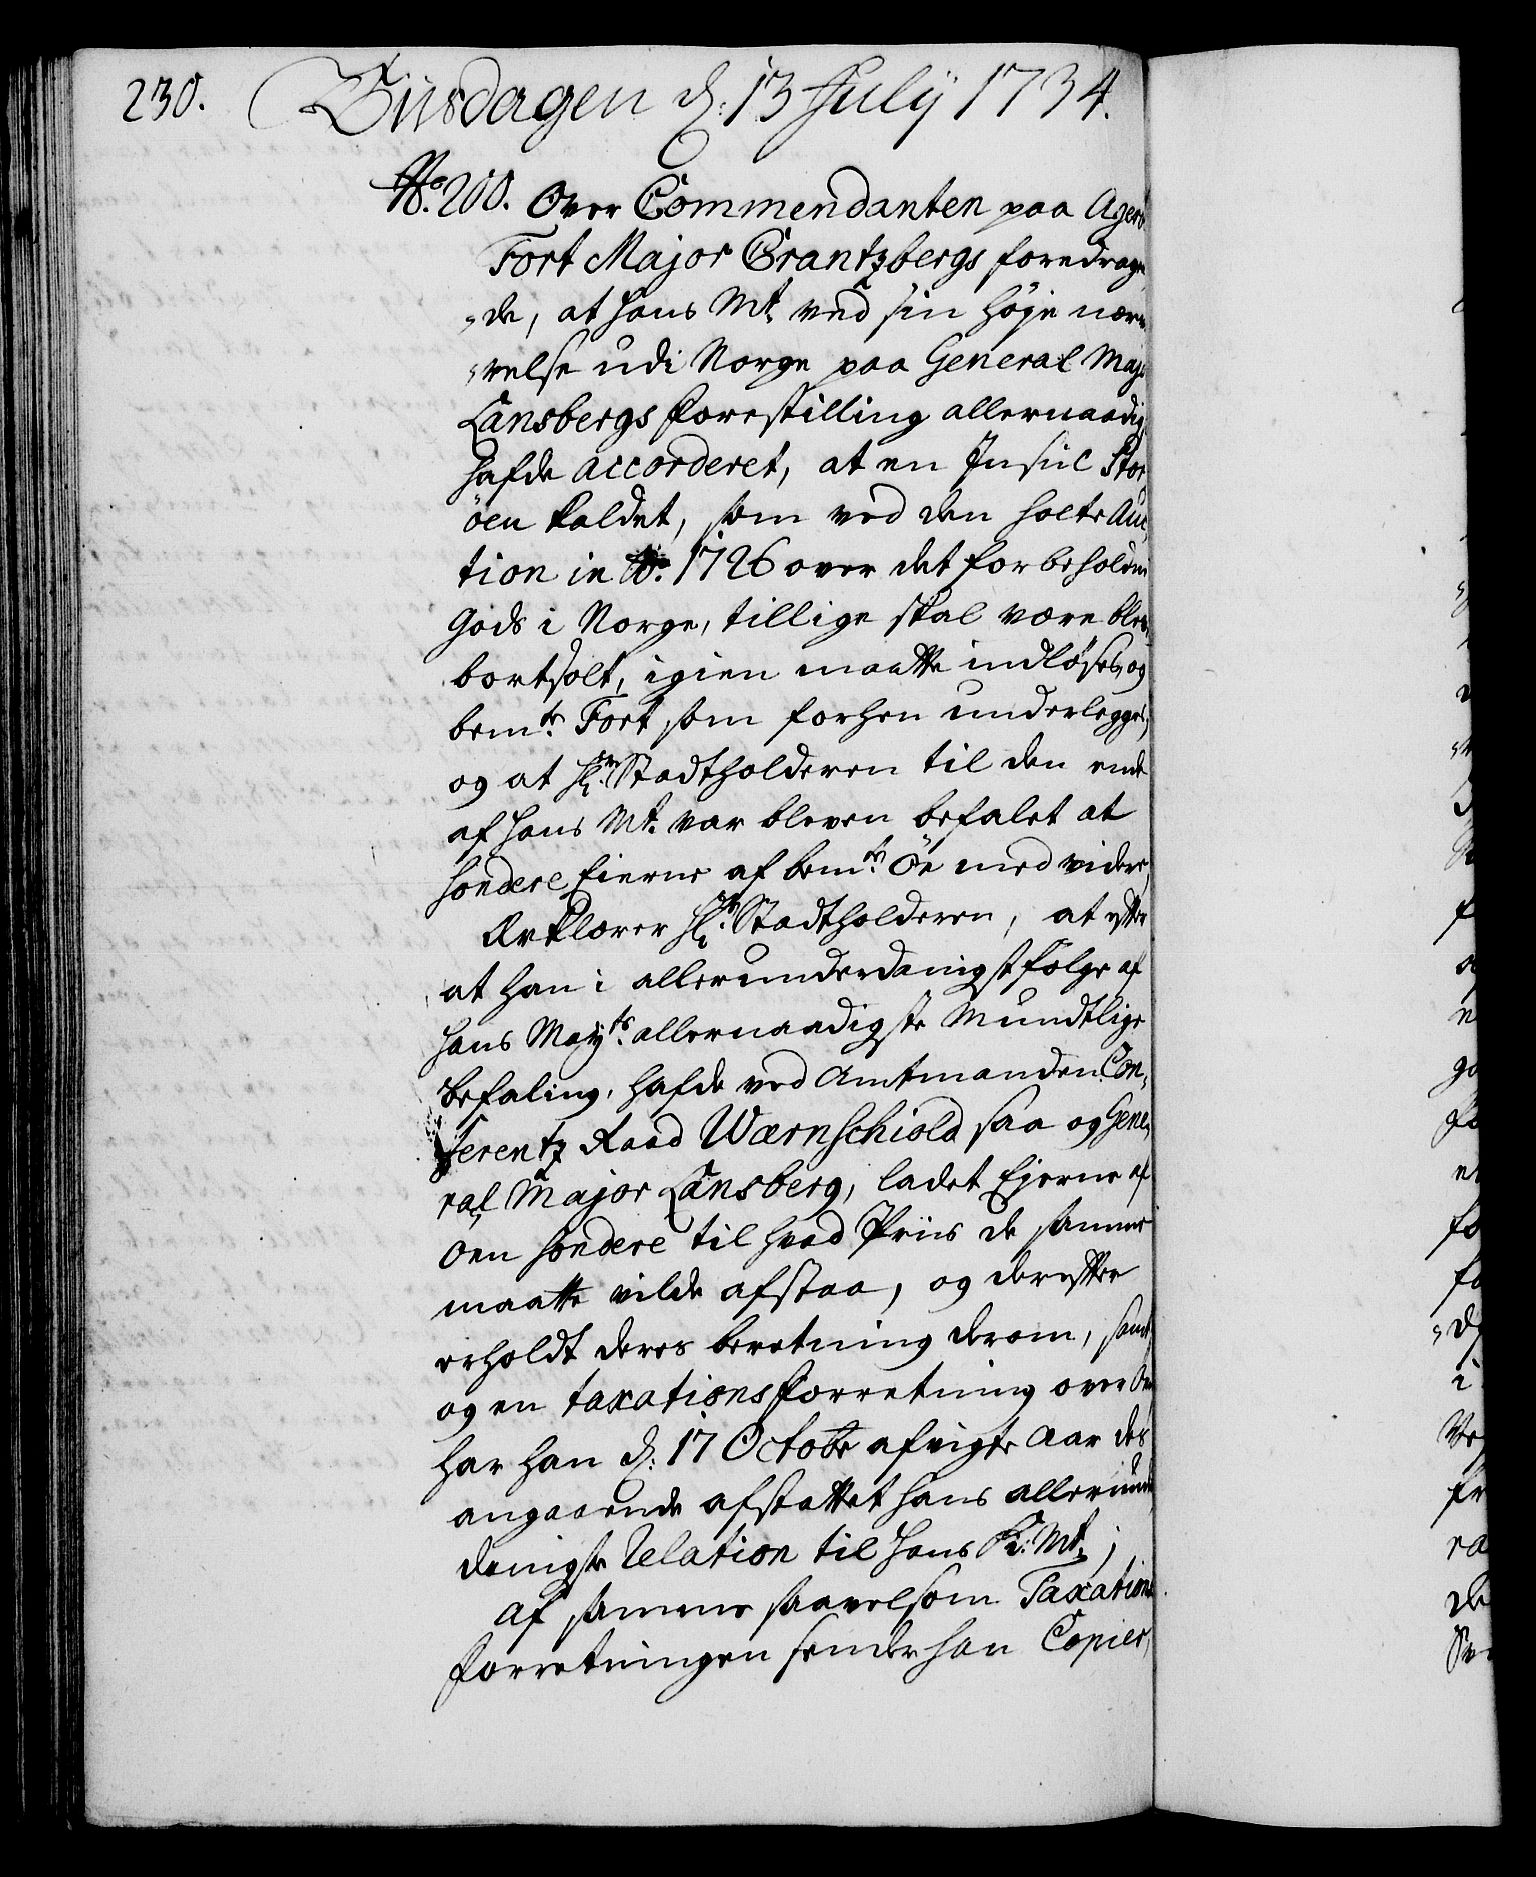 230.
Tiisdagen d: 13 July 1734.
No. 200. Over Commendanten paa Agerö
Fort Major Crantzbergs foredragen
"de, at hans Mt. ved sin höje nær
"velse udi Norge paa General Maj.
Lansbergs forestilling allernaadigst
hafde accorderet, at en Insul Stor
öen kaldet, som ved den holte Auc,
tion in Ao. 1726 over det forbeholdne
Gods i Norge, tillige skal være blev
bortsolt, igien maatte indlöses, og
bemte. Fort som forhen underlegges,
og at Hr. Stadtholderen til den ende
af hans Mt. var bleven befalet at
sondere Eierne af bemte. Öe med videre,
Erklærer Hr. Stadtholderen, at efter
at han i allerunderdanigst fölge af
hans Mayts. allernaadigste Mundtlige
befaling, hafde ved Amtmanden Con,
ferentz Raad Wærnschiold saa og Gene,
ral Major Lansberg, ladet Ejerne af
Öen sondere til hvad Priis de samme
maatte vilde afstaa, og derefter
erholdt deres beretning derom, samt
og en taxationsforretning over Öen
har han d: 17 Octobr afvigte Aar des
angaaende afstattet hans allerund
danigste Relation til hans K: Mt.;
Af samme saavelsom Taxations
forretningen sender han Copier,